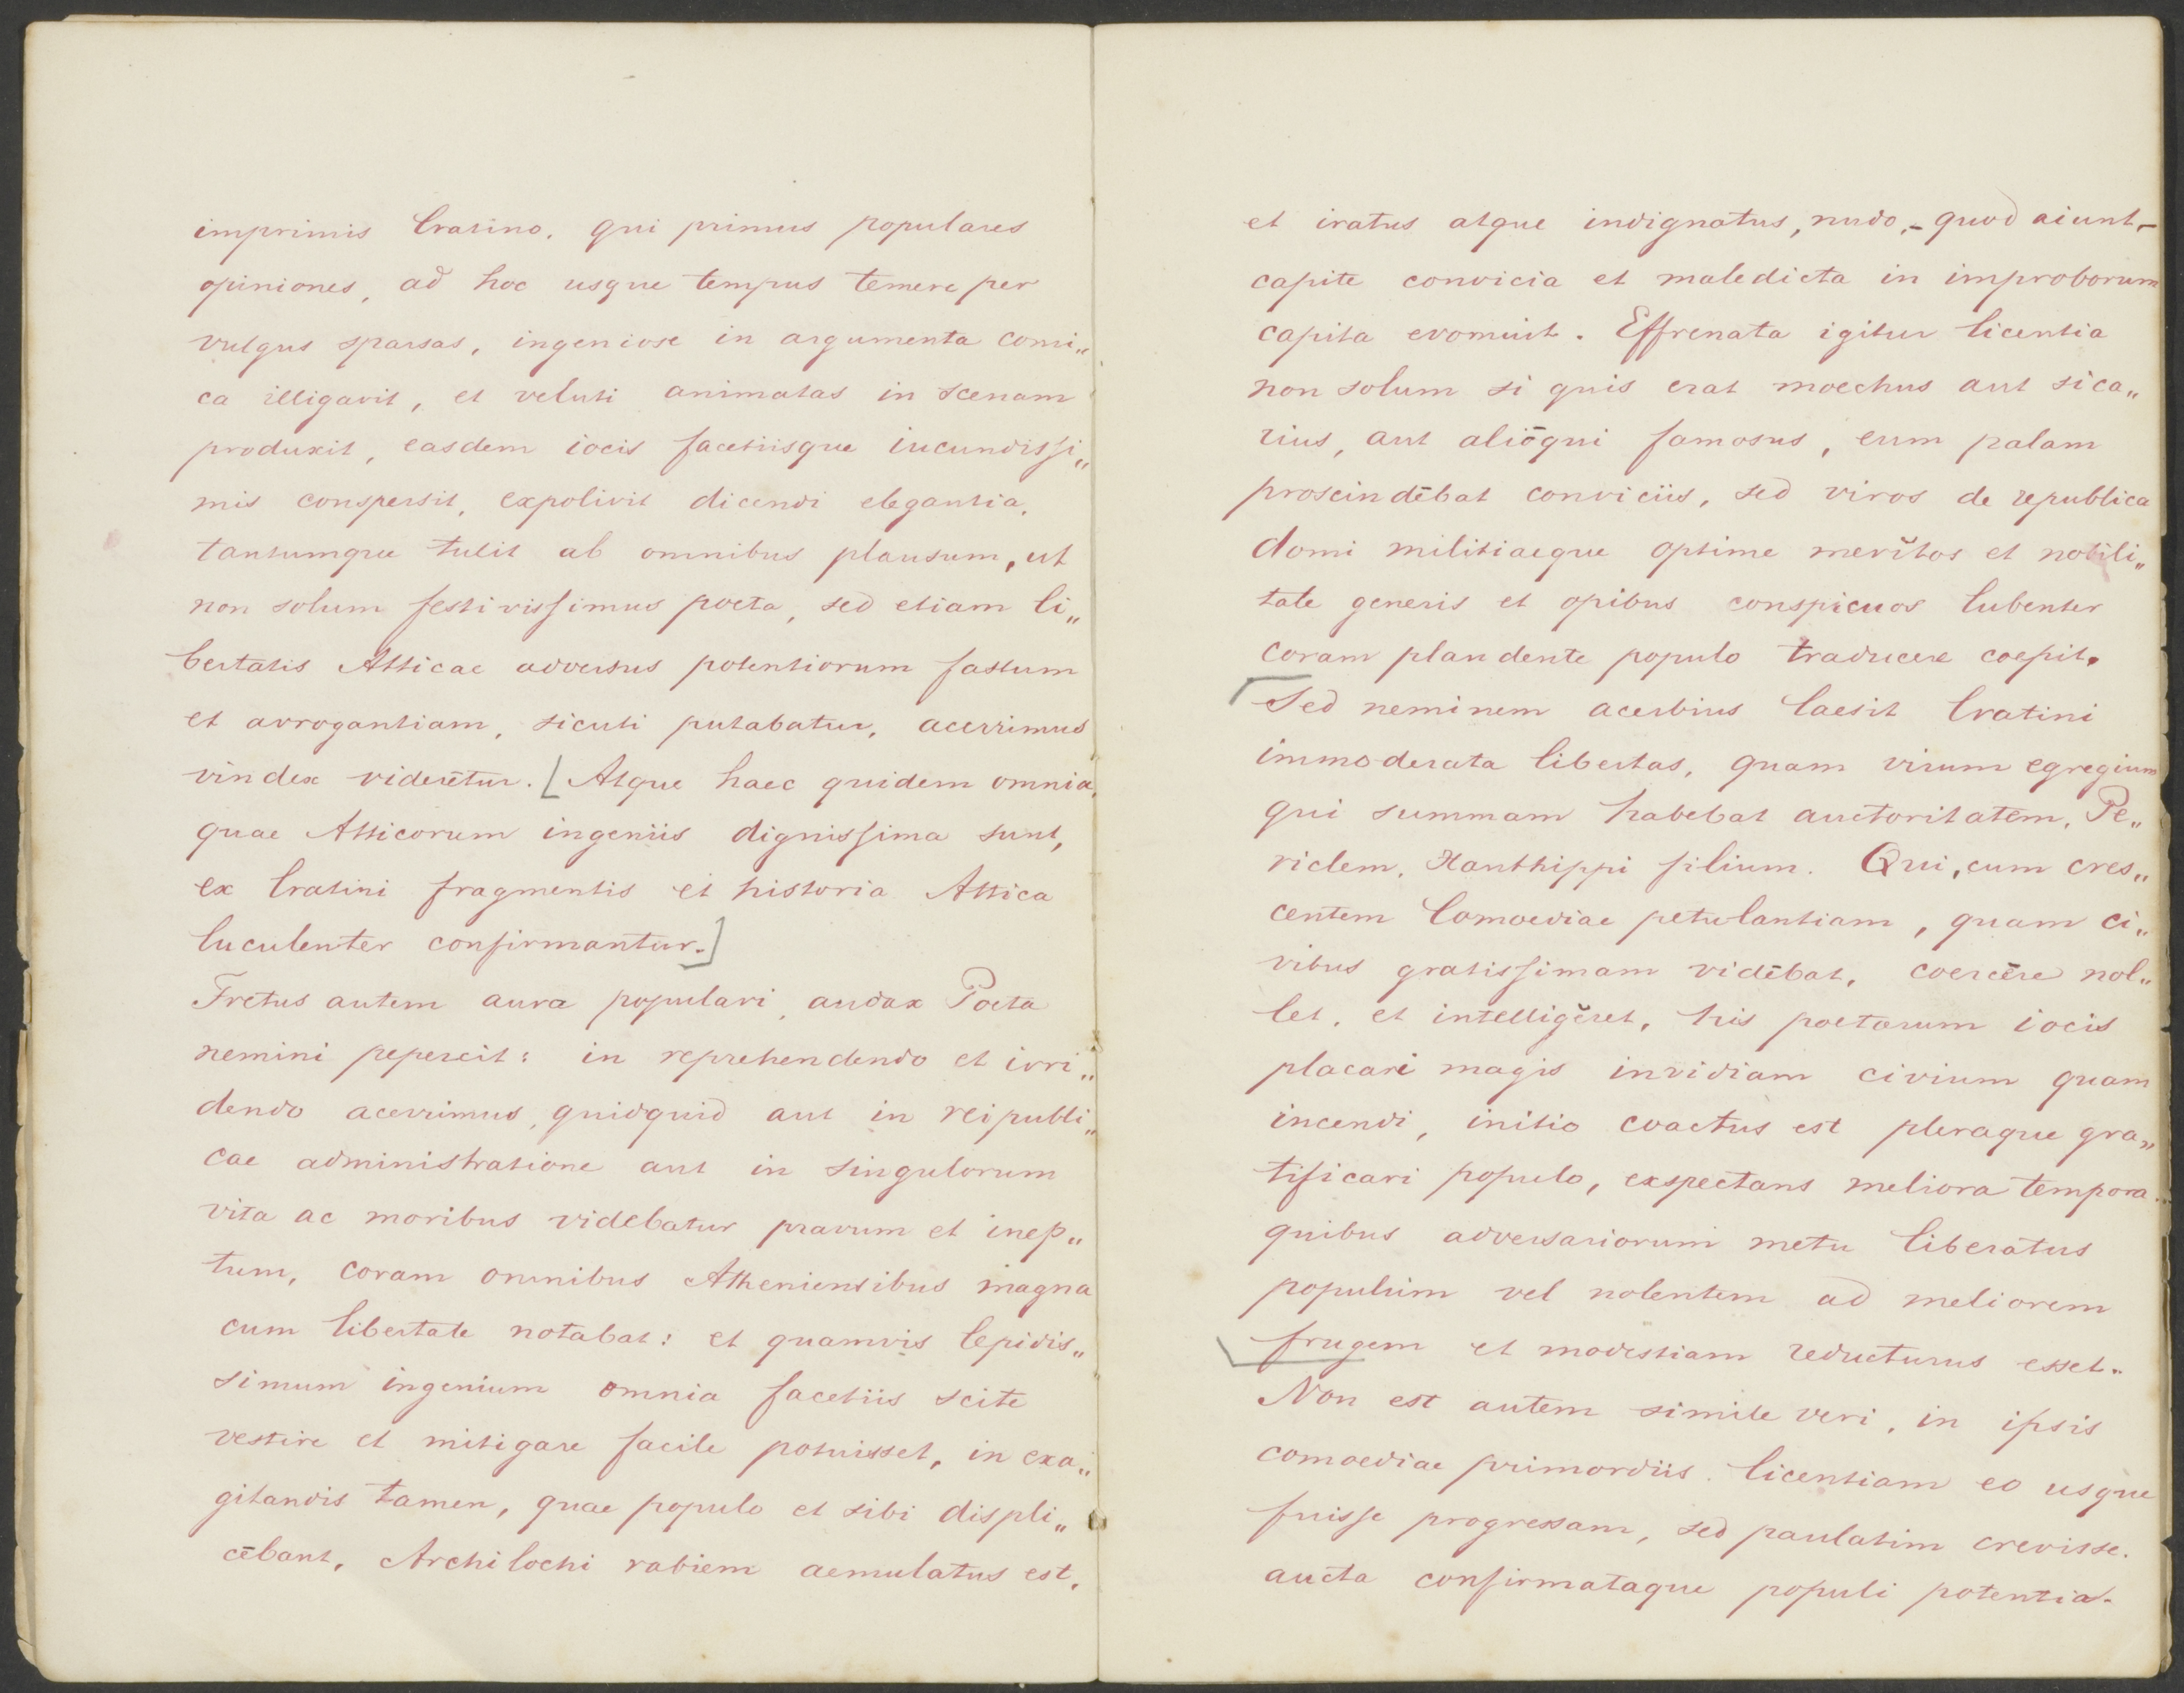 imprimis Cratino. qui primus populares
opiniones, ad hoc usque tempus temere per
vulgus sparsas, ingeniose in argumenta comi„
ca illigavit, et veluti animatas in scenam
produxit, easdem iocis facetiisque iucundissi„
mis conspersit, expolivit dicendi elegantia,
tantumque tulit ab omnibus plausum, ut
non solum festivissimus poeta, sed etiam li„
bertatis Atticae adversus potentiorum fastum
et arrogantiam, sicuti putabatur, acerrimus
vindex viderētur. [Atque haec quidem omnia,
quae Atticorum ingeniis dignissima sunt,
ex Cratini fragmentis et historia Attica
luculenter confirmantur.]
Fretus autem aura populari, audax Poeta
nemini pepercit: in reprehendendo et irri„
dendo acerrimus, quidquid aut in reipubli„
cae administratione aut in singulorum
vita ac moribus videbatur pravum et inep„
tum, coram omnibus Atheniensibus magna
cum libertate notabat: et quamvis lepidis„
simum ingenium omnia facetiis scite
vestire et mitigare facile potuisset, in exa„
gitandis tamen, quae populo et sibi displi„
cēbant, Archilochi rabiem aemulatus est,
et iratus atque indignatus, nudo, - quod aiunt, -
capite convicia et maledicta in improborum
capita evomuit. Effrenata igitur licentia
non solum si quis erat moechus aut sica„
rius, aut aliōqui famosus, eum palam
proscindēbat conviciis, sed viros de republica
domi militiaeque optime merĭtos et nobili„
tate generis et opibus conspicuos lubenter
coram plaudente populo traducere coepit.
Sed neminem acerbius laesit Cratini
immoderata libertas, quam virum egregium
qui summam habebat auctoritatem, Pe„
riclem, Xanthippi filium. Qui, cum cres„
centem Comoediae petulantiam, quam ci„
vibus gratissimam vidēbat, coercēre nol„
let, et intelligĕret, his poetarum iocis
placari magis invidiam civium quam
incendi, initio coactus est pleraque gra„
tificari populo, exspectans meliora tempora.
quibus adversariorum metu liberatus
populum vel nolentem ad meliorem
frugem et modestiam reducturus esset.
Non est autem simile veri, in ipsis
comoediae primordiis licentiam eo usque
fuisse progressam, sed paulatim crevisse.
aucta confirmataque populi potentia.